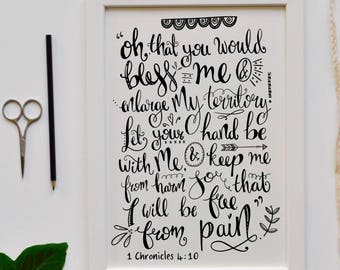 "oh that you would
bless me &
enlarge my territory.
Let your hand be
with me & keep me
from harm so that
I will be free
from pain"
1 Chronicles 4:10